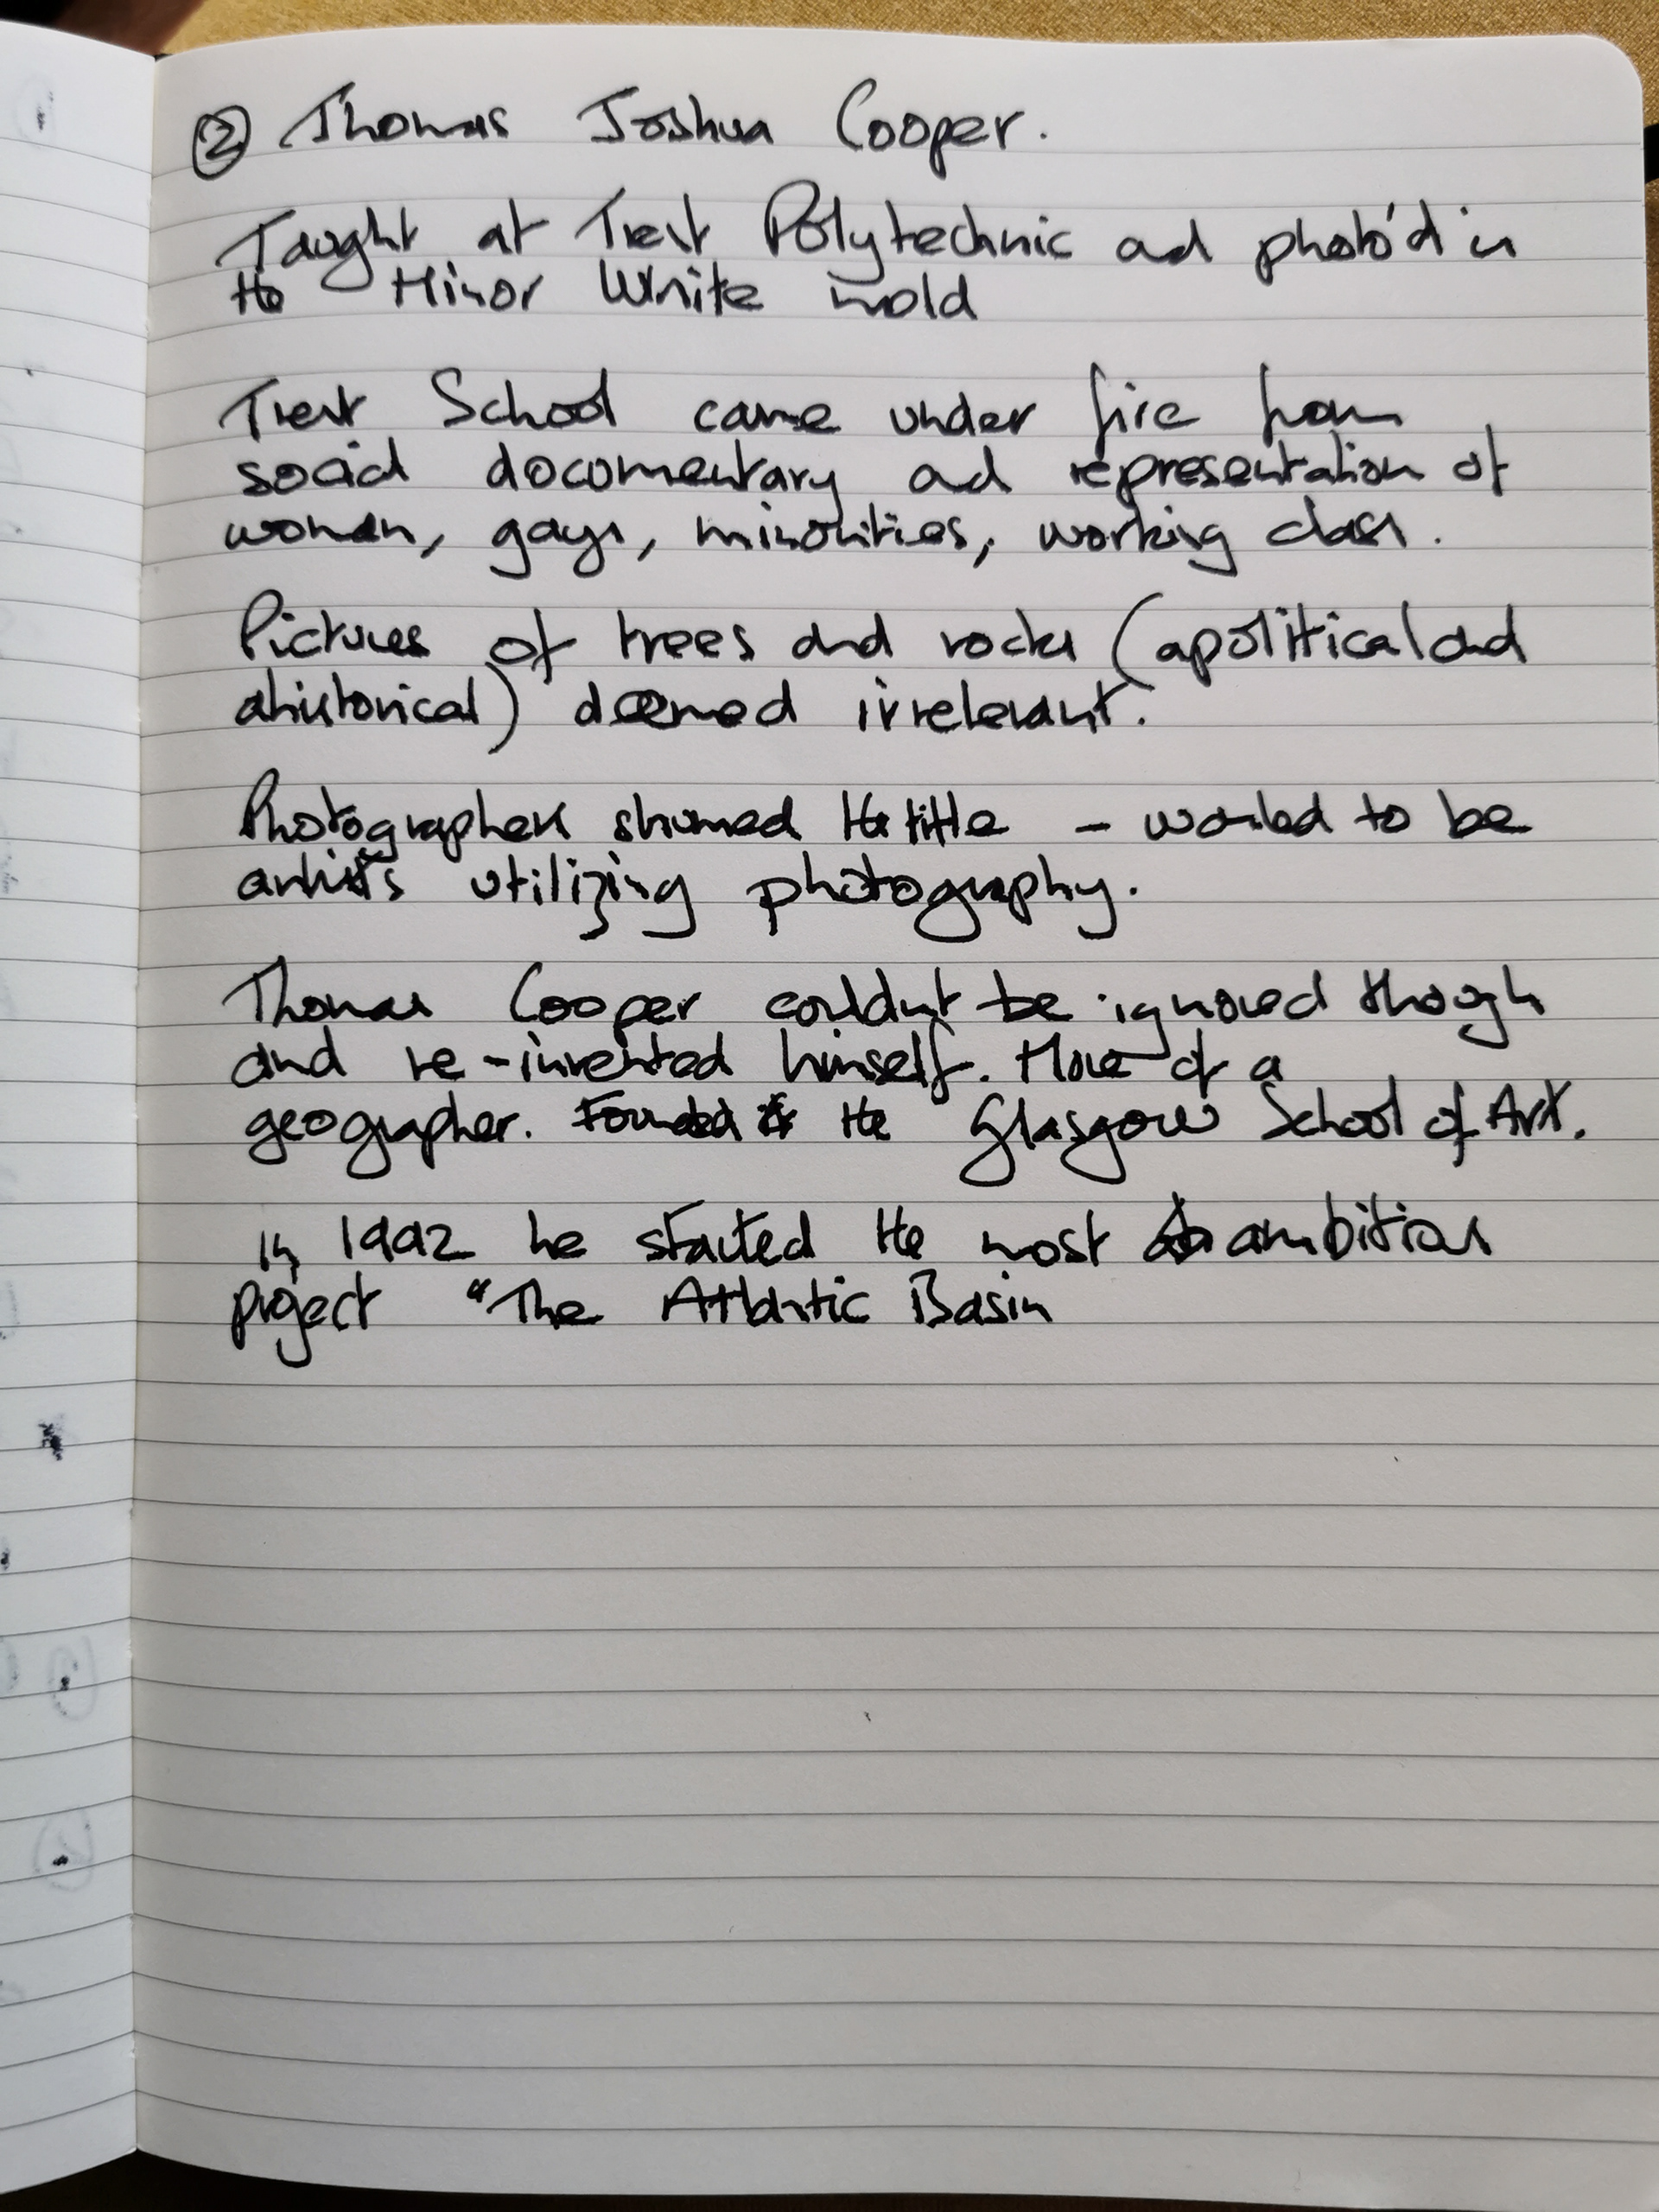 ② Thomas Joshua Cooper.
Taught at Trent Polytechnic ad photo'd in
the Minor White mold
Trent School came under fire from
social documentary ad representation of
women, gays, minorities, working class.
Pictures of trees and rocks (apolitical and
ahistorical) deemed irrelevant.
Photographers shunned the title - wanted to be
artists utilizing photography.
Thomas Cooper couldnt be ignored though
and re-invented himself. More of a
geographer. Founded the Glasgow School of Art.
In 1992 he started the most ambitious
project "The Atlantic Basin